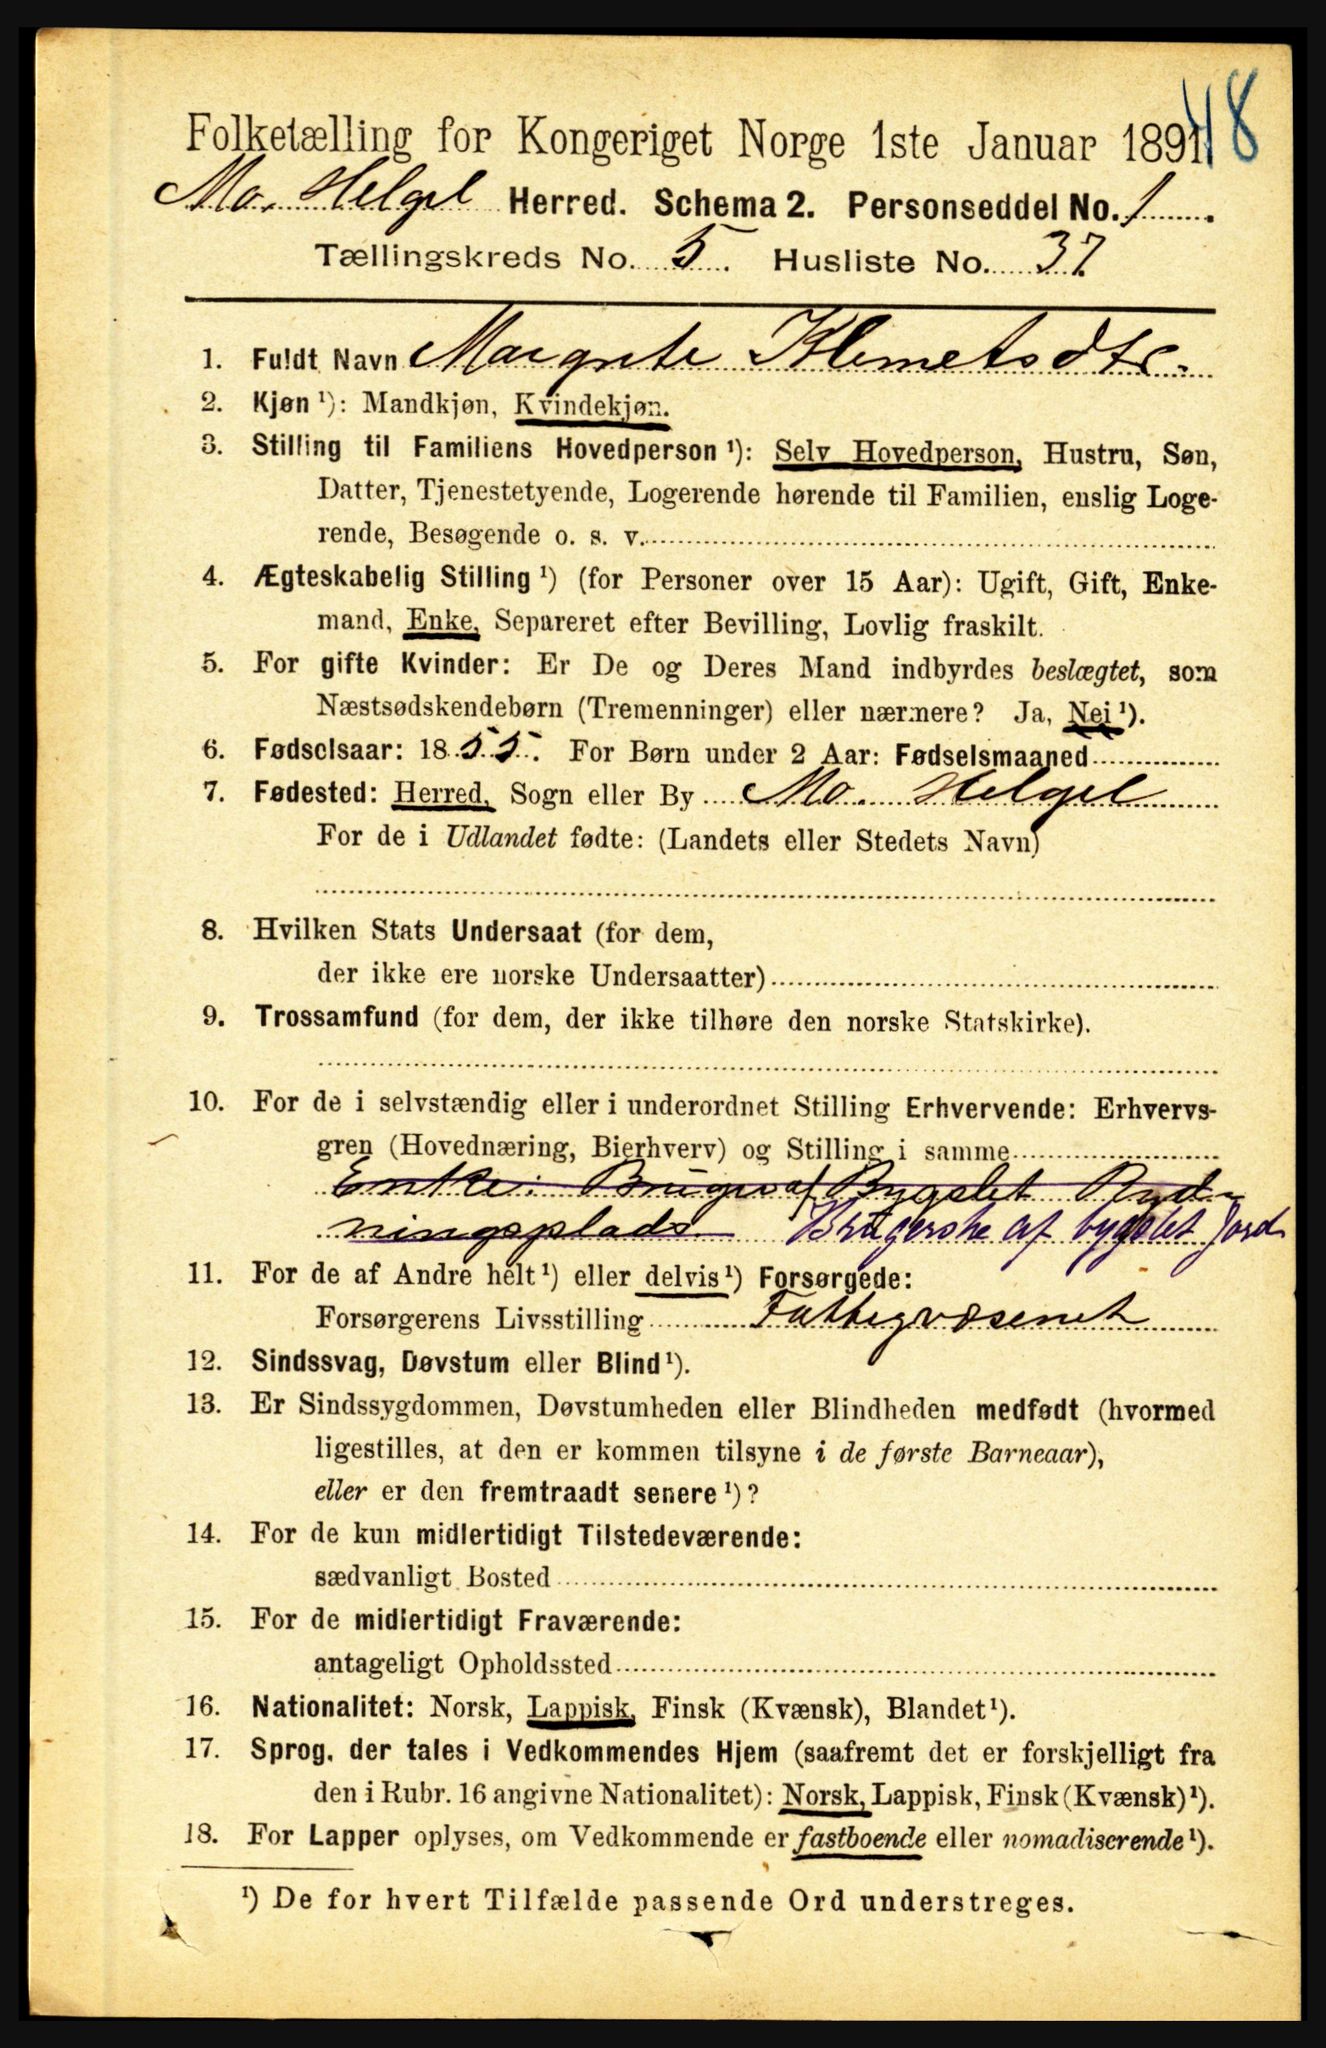 48
Folketælling for Kongeriget Norge 1ste Januar 1891.
Mo. Helgel Herred. Schema 2. Personseddel No. 1.
Tællingskreds No. 5. Husliste No. 37.
1. Fuldt Navn Margrete Klemetsdtr.
2. Kjøn ¹): Mandkjøn, Kvindekjøn.
3. Stilling til Familiens Hovedperson ¹): Selv Hovedperson, Hustru, Søn,
Datter, Tjenestetyende, Logerende hørende til Familien, enslig Loge-
rende, Besøgende o. s. v.
4. Ægteskabelig Stilling ¹) (for Personer over 15 Aar): Ugift, Gift, Enke-
mand, Enke, Separeret efter Bevilling, Lovlig fraskilt.
5. For gifte Kvinder: Er De og Deres Mand indbyrdes beslægtet, som
Næstsødskendebørn (Tremenninger) eller nærmere? Ja, Nei ¹).
6. Fødselsaar: 1855. For Børn under 2 Aar: Fødselsmaaned
7. Fødested: Herred, Sogn eller By Mo. Helgel
For de i Udlandet fødte: (Landets eller Stedets Navn)
8. Hvilken Stats Undersaat (for dem,
der ikke ere norske Undersaatter)
9. Trossamfund (for dem, der ikke tilhøre den norske Statskirke).
10. For de i selvstændig eller i underordnet Stilling Erhvervende: Erhvervs-
gren (Hovednæring, Bierhverv) og Stilling i samme
Enke: Bruger af Bygslet Ryd-
ningsplads Brugerske af bygslet Jord
11. For de af Andre helt ¹) eller delvis ¹) Forsørgede:
Forsørgerens Livsstilling Fattigvæsenet
12. Sindssvag, Døvstum eller Blind ¹).
13. Er Sindssygdommen, Døvstumheden eller Blindheden medfødt (hvormed
ligestilles, at den er kommen tilsyne i de første Barneaar),
eller er den fremtraadt senere ¹)?
14. For de kun midlertidigt Tilstedeværende:
sædvanligt Bosted
15. For de midlertidigt Fraværende:
antageligt Opholdssted
16. Nationalitet: Norsk, Lappisk, Finsk (Kvænsk), Blandet ¹).
17. Sprog, der tales i Vedkommendes Hjem (saafremt det er forskjelligt fra
den i Rubr. 16 angivne Nationalitet): Norsk, Lappisk, Finsk (Kvænsk) ¹).
18. For Lapper oplyses, om Vedkommende er fastboende eller nomadiserende ¹).
¹) De for hvert Tilfælde passende Ord understreges.